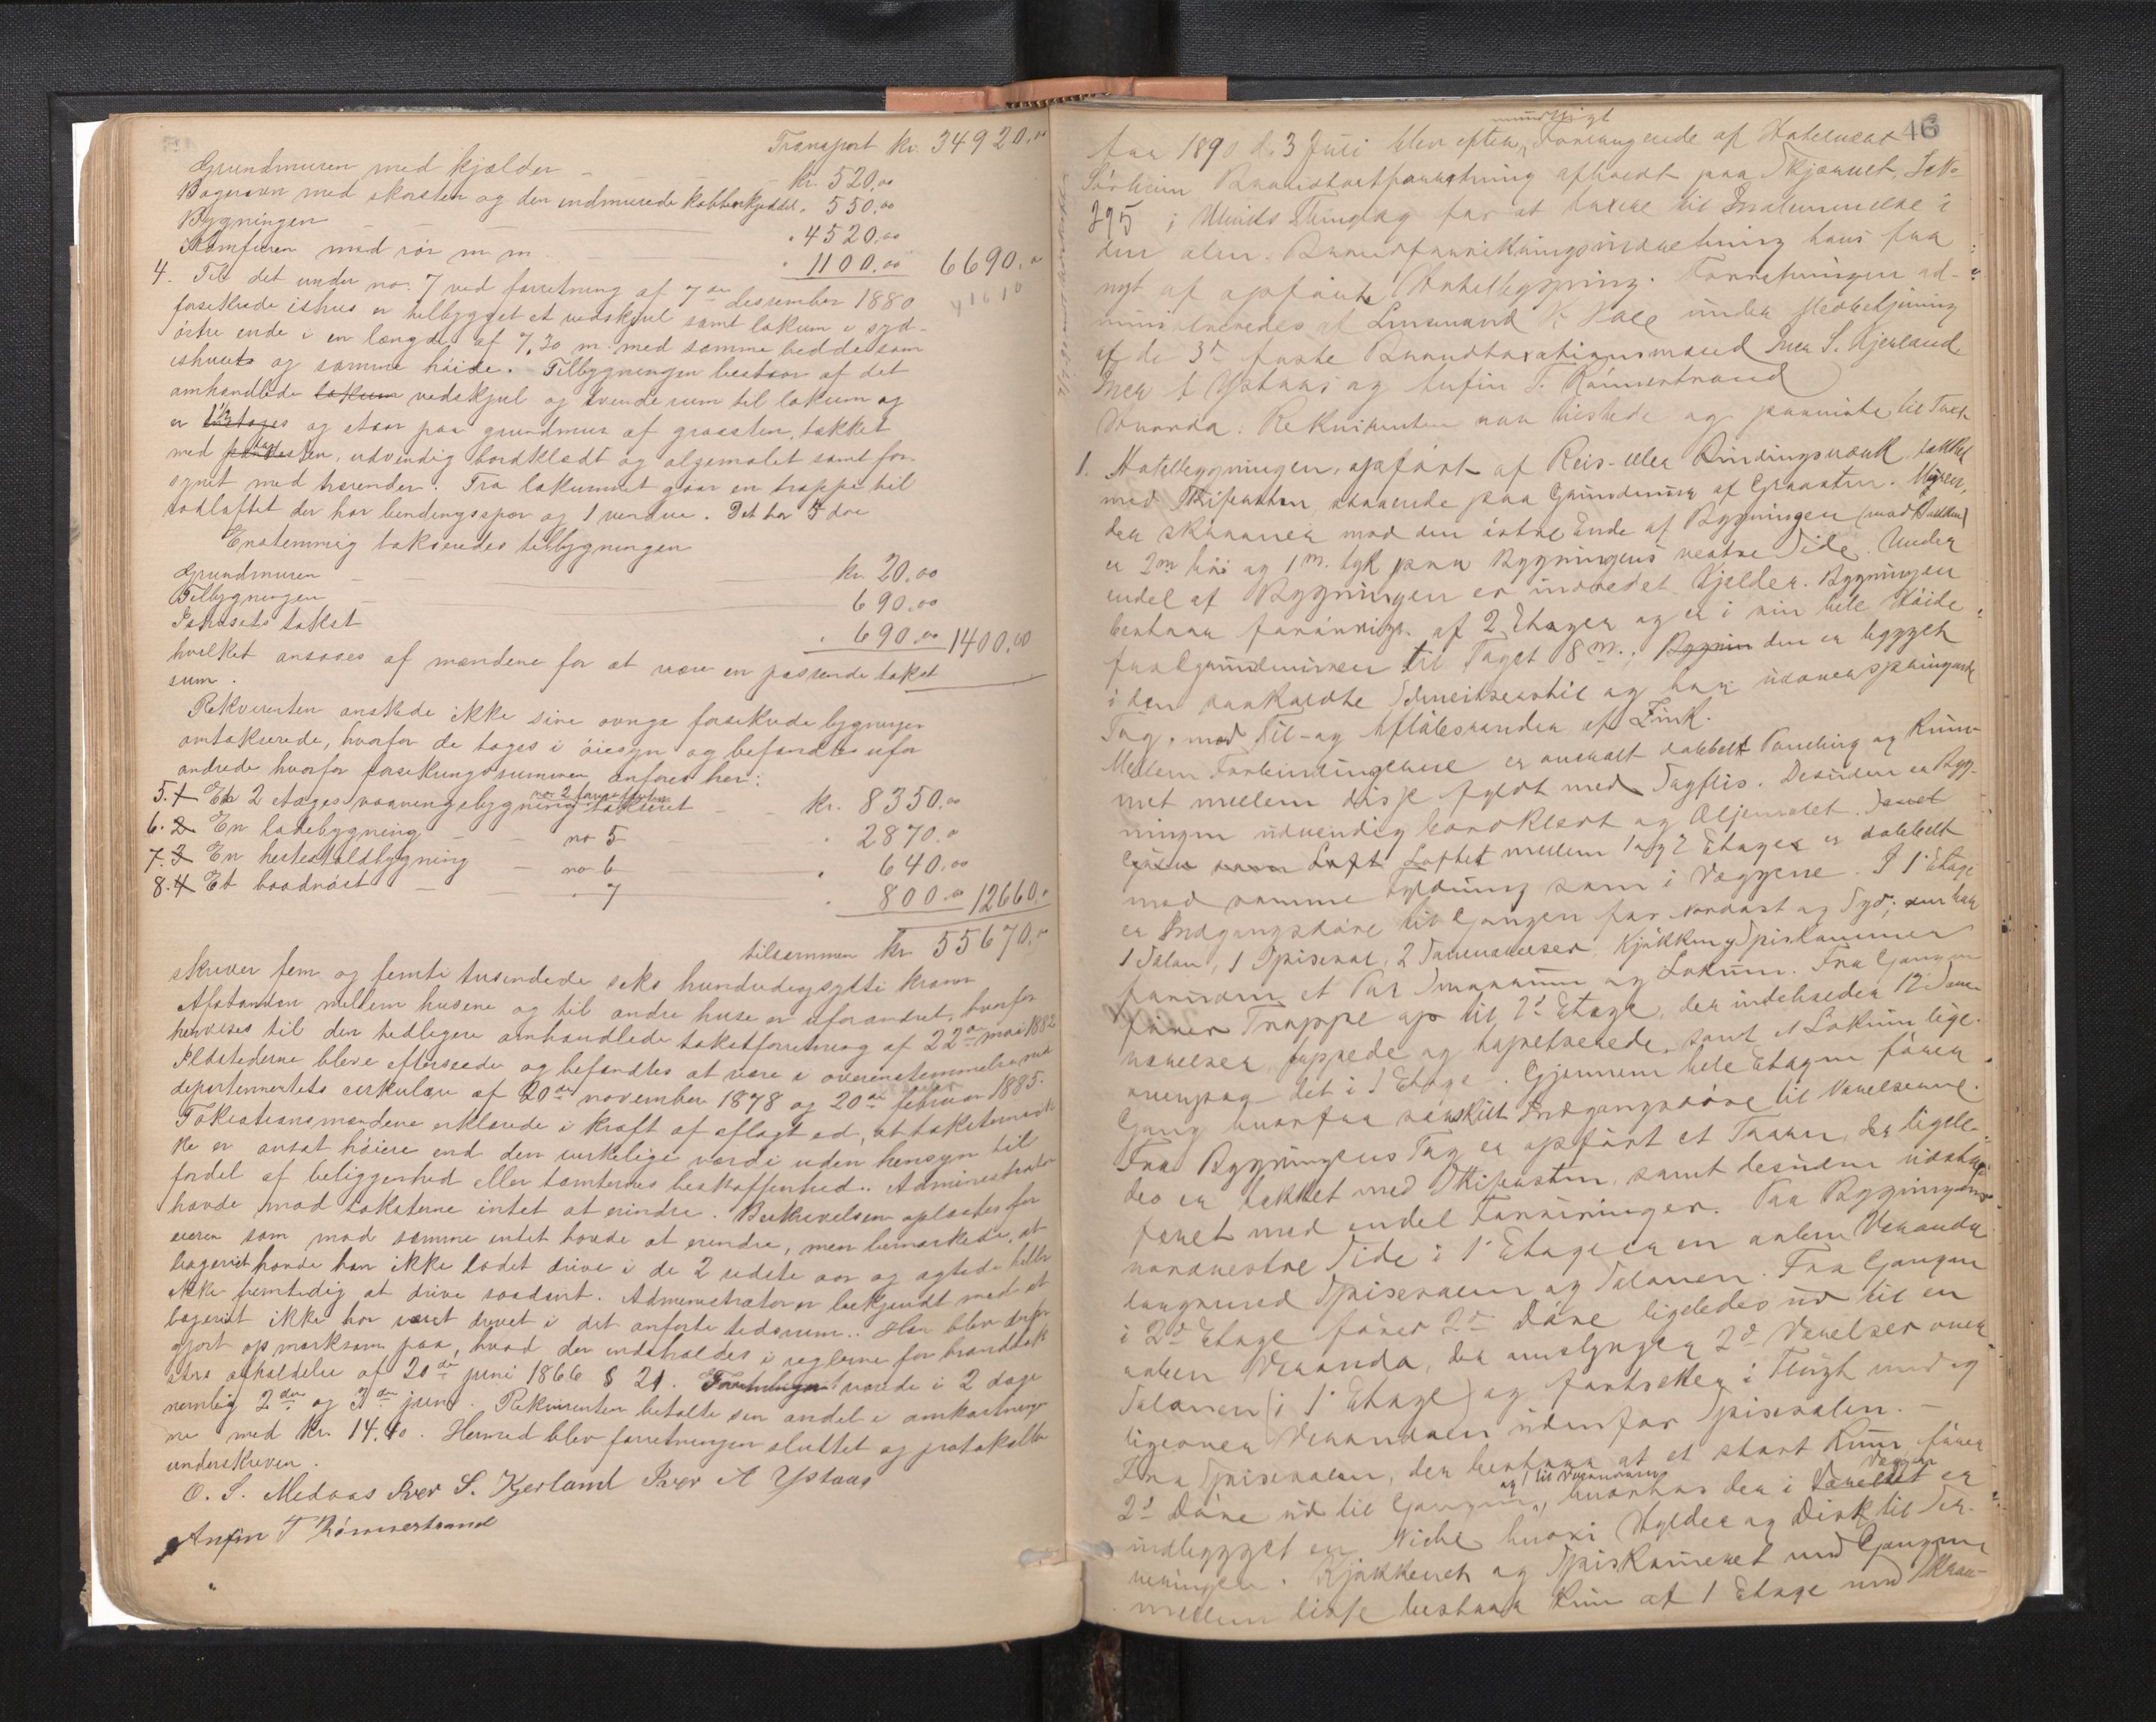 Transport kr. 34920.00
Grundmuren med kjælder - - kr. 520.00
Bagerovn med skorsten og den indmurede kobberkjeddel " 550.00
Bygningen " 4520.00
Komfuren med rör m. m. " 1100.00 6690.00
41610
4. Til det under no. 7 ved forretning af 7de desember 1880
forsikrede ishus er tilbygget et vedskjul samt lokum i syd-
östre ende i en længde af 7,30 m. med samme bredde som
ishuset og samme höide. Tilbygningen bestaar af det
omhandlede lokum vedskjul og tvende rum til lokum og
er 1½ etages og staar paa grundmur af graasten, takket
med tagsten, udvendig bordklædt og oljemalet samt for-
synet med tagrender. Fra lokummet gaar en trappe til
loftet der har bindingsspær og 1 vindue. Det har 5 döre
Enstemmig takseredes tilbygningen
Grundmuren - kr. 20.00
Tilbygningen - 690.00
Ishusets takst " 690.00 1400.00
hvilket ansaaes af mændene for at være en passende takst
sum.
Rekvirenten önskede ikke sine övrige forsikrede bygninger
omtakserede, hvorfor de toges i öiesyn og befandtes ufor-
andrede hvorfor forsikringssummen anföres her:
5. 1 En 2 etages vaaningsbygning no 2 takseret - kr. 8350.00
6. 2 En ladebygning - no 5 " 2870.0
7. 3 En hestestaldbygning - no 6 " 640.00
8. 4 Et baadnöst - " 7 " 800.00 12660.0
tilsammen kr 55670.00
skriver fem og femti tusindede seks hundrede og sytti kroner
Afstanden mellem husene og til andre huse er uforandret, hvorfor
henvises til den tidligere omhandlede takstforretning af 22de mai 1882
Ildstederne bleve efterseede og befandtes at være i overensstemmelse med
departementets cirkulære af 20de november 1878 og 20de februar 1885.
Taksationsmændene erklærede i kraft af aflagt ed, at taksterne ik-
ke er ansat höiere end den virkelige værdi uden hensyn til
fordel af beliggenhed eller tomternes beskaffenhed. Administrator
havde mod taksterne intet at erindre. Beskrivelsen oplæstes for
eieren som mod samme intet havde at erindre, men bemærkede, at
bageriet havde han ikke ladet drive i de 2 sidste aar og agtede heller
ikke fremtidig at drive saadant. Administrator er bekjendt med at
bageriet ikke har været drevet i det anförte tidsrum. Han blev derfor
gjort opmærksom paa, hvad der indeholdes i reglerne for brandtak-
sters afholdelse af 20de juni 1866 § 21. Forretningen varede i 2 dage
nemlig 2den og 3die juni. Rekvirenten betalte sin andel i omkostninger-
ne med kr. 14.40. Hermed blev forretningen sluttet og protokollen
underskreven.
O. S. Medaas Iver S. Kjerland Iver A Ystaas
Anfin T Rönnestrand
46
mundtligt
Aar 1890 d. 3 Juli blev efter Forlangende af Hoteleier
Brandtaxtforretning afholdt paa Skjærvet, L.No
295 i Ulviks Thinglag for at taxere til Indlemmelse i
den alm. Brandforsikringsindretning hans paa
nyt af opförte Hotelbygning. Forretningen ad-
ministreredes af Lensmand under Medbetjening
af de 3de faste Brandtaxationsmænd Iver S. Kjerland
Iver A Ystaas og Anfin T. Rönnestrand
Rekvirenten var tilstede og paaviste til Taxt
1. Hotelbygningen, opfört af Reis- eller Bindingsværk, takket
med Skifersten, staaende paa Grundmur af Graasten. Muren,
der skraaner mod den östre Ende af Bygningen (mod Bakken)
er 2m höi og 1m. tyk paa Bygningens vestre Side. Under
endel af Bygningen er indredet Kjelder. Bygningen
bestaar forövrigt af 2 Etager og er i sin hele Höide
fra Grundmuren til Taget 8m.; Bygnin den er bygget
i den saakaldte Schweitserstil og har udoverspringende
Tag, med Til- og Aflöbsrender af Zink.
Mellem Forbindingerne er overalt dobbelt Paneling og Rum-
met mellem disse fyldt med Sagflis. Desuden er Byg-
ningen udvendig bordklædt og Oljemalet. Samt
Loft Loftet mellem 1 og 2 Etages er dobbelt
med samme Fyldning som i Væggene. I 1ste Etage
er Indgangsdöre til Gangen fra Nordöst og Syd; den har
1 Salon, 1 Spisesal, 2 Soveværelser Kjökken og Spiskammer
foruden et Par Smaarum og Lokum. Fra Gangen
förer Trappe op til 2d Etage, der indeholder 12 Sove-
værelser, pappede og tapetserede, samt et Lokum lige
ovenpaa det i 1 Etage. Gjennem hele Etagen förer
Gang hvorfra særskilt Indgangsdöre til Værelserne.
Fra Bygningens Tag er opfört et Taarn, der ligele-
des er takket med Skifersten, samt desuden udstaf-
feret med endel Forsiringer. Paa Bygningens
nordvestre Side i 1 Etage er en aaben Veranda
langsmed Spisesalen og Salonen. Fra Gangen
i 2d Etage förer 2de Döre ligeledes ud til en
aaben Veranda, der omslynger 2d Værelser over
Salonen (i 1 Etage) og fortsætter i Flugt med og
ligeover Verandaen udenfor Spisesalen. -
Fra Spisesalen, der bestaar af et stort Rum, förer
2d Döre ud til Gangen og 1 til Verandaen, hvorhos der i Værelset Væggen er
indbygget en Niche hvori Hylder og Disk til Ser-
veringen. Kjökkenet og Spiskammeret med Gangen
mellem disse bestaar kun af 1 Etage med Skraa-